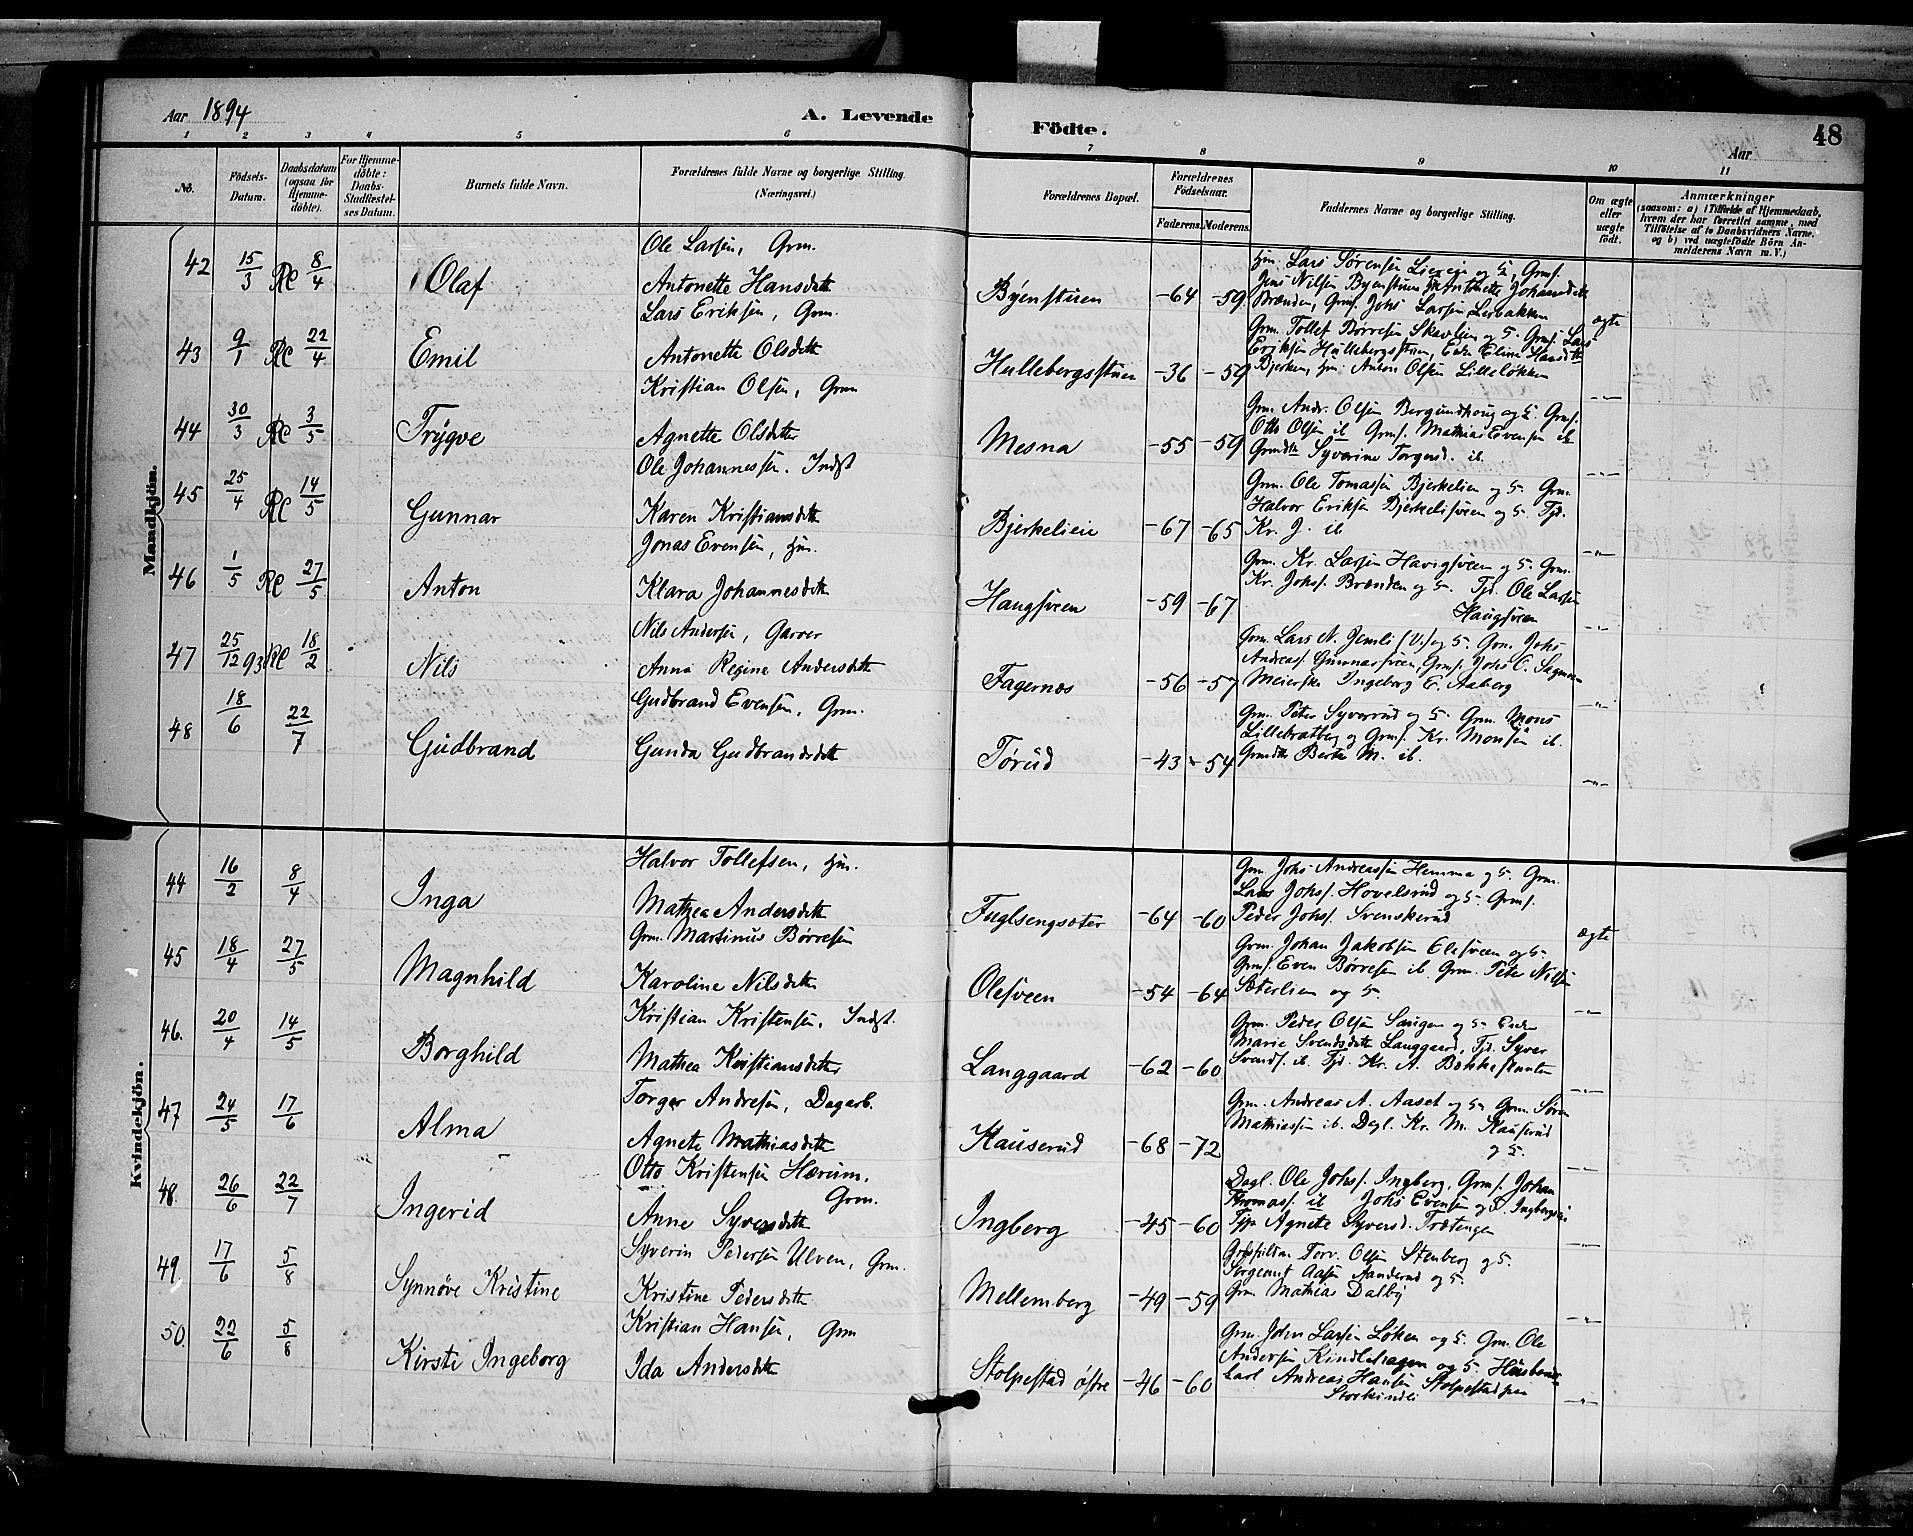 Aar 1894 A. Levende Födte. 48
Aar
1 2 3 4 5 6 7 8 9 10 11
No. Födsels-Datum. Daabsdatum (ogsaa for Hjemmedöbte). For Hjemmedöbte: Daabs-Stadfæstelses Datum. Barnets fulde Navn. Forældrenes fulde Navne og borgerlige Stilling. (Næringsvei.) Forældrenes Bopæl. Forældrenes Födselsaar. Faderens. Moderens. Faddernes Navne og borgerlige Stilling. Om ægte eller uægte födt. Anmærkninger (saasom: a) i Tilfælde af Hjemmedaab, hvem der har forrettet samme, med Tilföielse af to Daabsvidners Navne, og b) ved uægtefödte Börn Anmelderens Navn m. V.)
Mandkjön.
42 15/3 8/4 Olaf Ole Larsen, Grm.
Antonette Hansdatt Byenstuen -64 -59 Hm. Lars Sørensen Lieeie og 5, Grmf.
Jens Nilsen Byenstuen Antonette Johannsdatt
Brænden, Grmf. Johs Larsen Liebakken ægte
43 9/1 22/4 Emil Lars Eriksen, Grm.
Antonette Olsdatt Hullebergsstuen -36 -59 Grm. Tollef Børresen Skavlien og 5. Grmf. Lars
Eriksen Hullebergsstuen, Enke Eline Hansdtt
Bjerken, Hm. Anton Olsen Lilleløkken -"-
44 30/3 3/5 Trygve Kristian Olsen, Grm
Agnette Olsdatter Mesna -55 -59 Grm. Andr. Olsen Bergundhaug og 5. Grmf.
Otto Olsen ib Grmf. Mathias Evensen ib
Grmdtt Syverine Torgersd. ib. -"-
45 25/4 14/5 Gunnar Ole Johannessen. Indst
Karen Kristiansdatt Bjerkelieie -67 -65 Grm. Ole Tomassen Bjerkelien og 5. Grm.
Halvor Eriksen Bjerkelisveen og 5. Tjd.
Kr. J. ib -"-
46 1/5 27/5 Anton Jonas Evensen, Hm.
Klara Johannesdatt Haugsveen -59 -67 Grm. Kr. Larsen Havigsveen og 5. Grm.
Kr. Johsf. Brænden og 5. Tjd. Ole Larsen
Haugsveen -"-
47 25/12 93 18/2 Nils Nils Andersen, Garver
Anna Regine Andersdatt Fagernæs -56 -57 Grm. Lars N. Jemli (V.) og 5. Grm. Johs
Andreasf. Gunnarsveen, Grmf. Johs O.
Meierske Ingeborg E. Aaberg -"-
48 18/6 22/7 Gudbrand Gudbrand Evensen, Grm.
Gunda Gudbrandsdatt Tørud -43 -54 Grm. Peter Syverrud og 5. Grm. Mons
Lillebratberg og Grmf. Kr. Monsen ib.
Grmdtt Berte M. ib. -"-
Kvindekjön.
44 16/2 8/4 Inga Halvor Tollefsen, Hm.
Mathea Andersdatt Fuglsengsæter -64 -60 Grm Johs Andreassen Hemma og 5. Grm.
Lars Johsf. Hovelsrud og 5. Grmf.
Peder Johsf. Svenskerud ægte
45 18/4 27/5 Magnhild Grm. Martinus Børresen
Karoline Nilsdatt Olesveen -54 -64 Grm. Johan Jakobsen Olesveen og 5.
Grmf. Even Børresen ib Grm. Peter Nilsen
Sæterlien og 5. -"-
46. 20/4 14/5 Borghild Kristian Kristensen, Indst.
Mathea Kristiansdatter Langgaard -62 -60 Grm. Peder Olsen Saugen og 5. Enke
Marie Svendsdatt Langgaard, Tjd. Syver
Svendsf. ib. Tjd. Kr. A. -"-
47 24/5 17/6 Alma Torger Andresen, Dagarb.
Agnete Mathiasdatt Kauserud -68 -72 Grm. Andreas A. Aaset og 5. Grm. Søren
Mathiassen ib. Dagl. Kr. M. Kauserud
og 5. -"-
48. 26/6 22/7 Ingerid Otto Kristensen Hærum,
Grm.
Anne Syversdatt Ingberg -45 -60 Dagl. Ole Johsf. Ingberg, Grmf. Johan
Thomasf. ib Johs Evensen og 5
Agnete Syversd. Trætengen -"-
49. 17/6 5/8 Synnöve Kristine Syverin Pedersen Ulven, Grm.
Kristine Pedersdatt Mellemberg -49 -59 Torv. Olsen Stenberg og 5.
Sergeant Aasen Aanderud og 5.
Grm Mathias Dalby -"-
50. 22/6 5/8 Kirsti Ingeborg Kristian Hansen, Grm
Ida Andersdatt Stolpestad østre -46 -60 Grm. Johs Larsen Løken og 5. Grm. Ole
Andersen Kindlihagen og 5.
Carl Andreas Hansen -"-